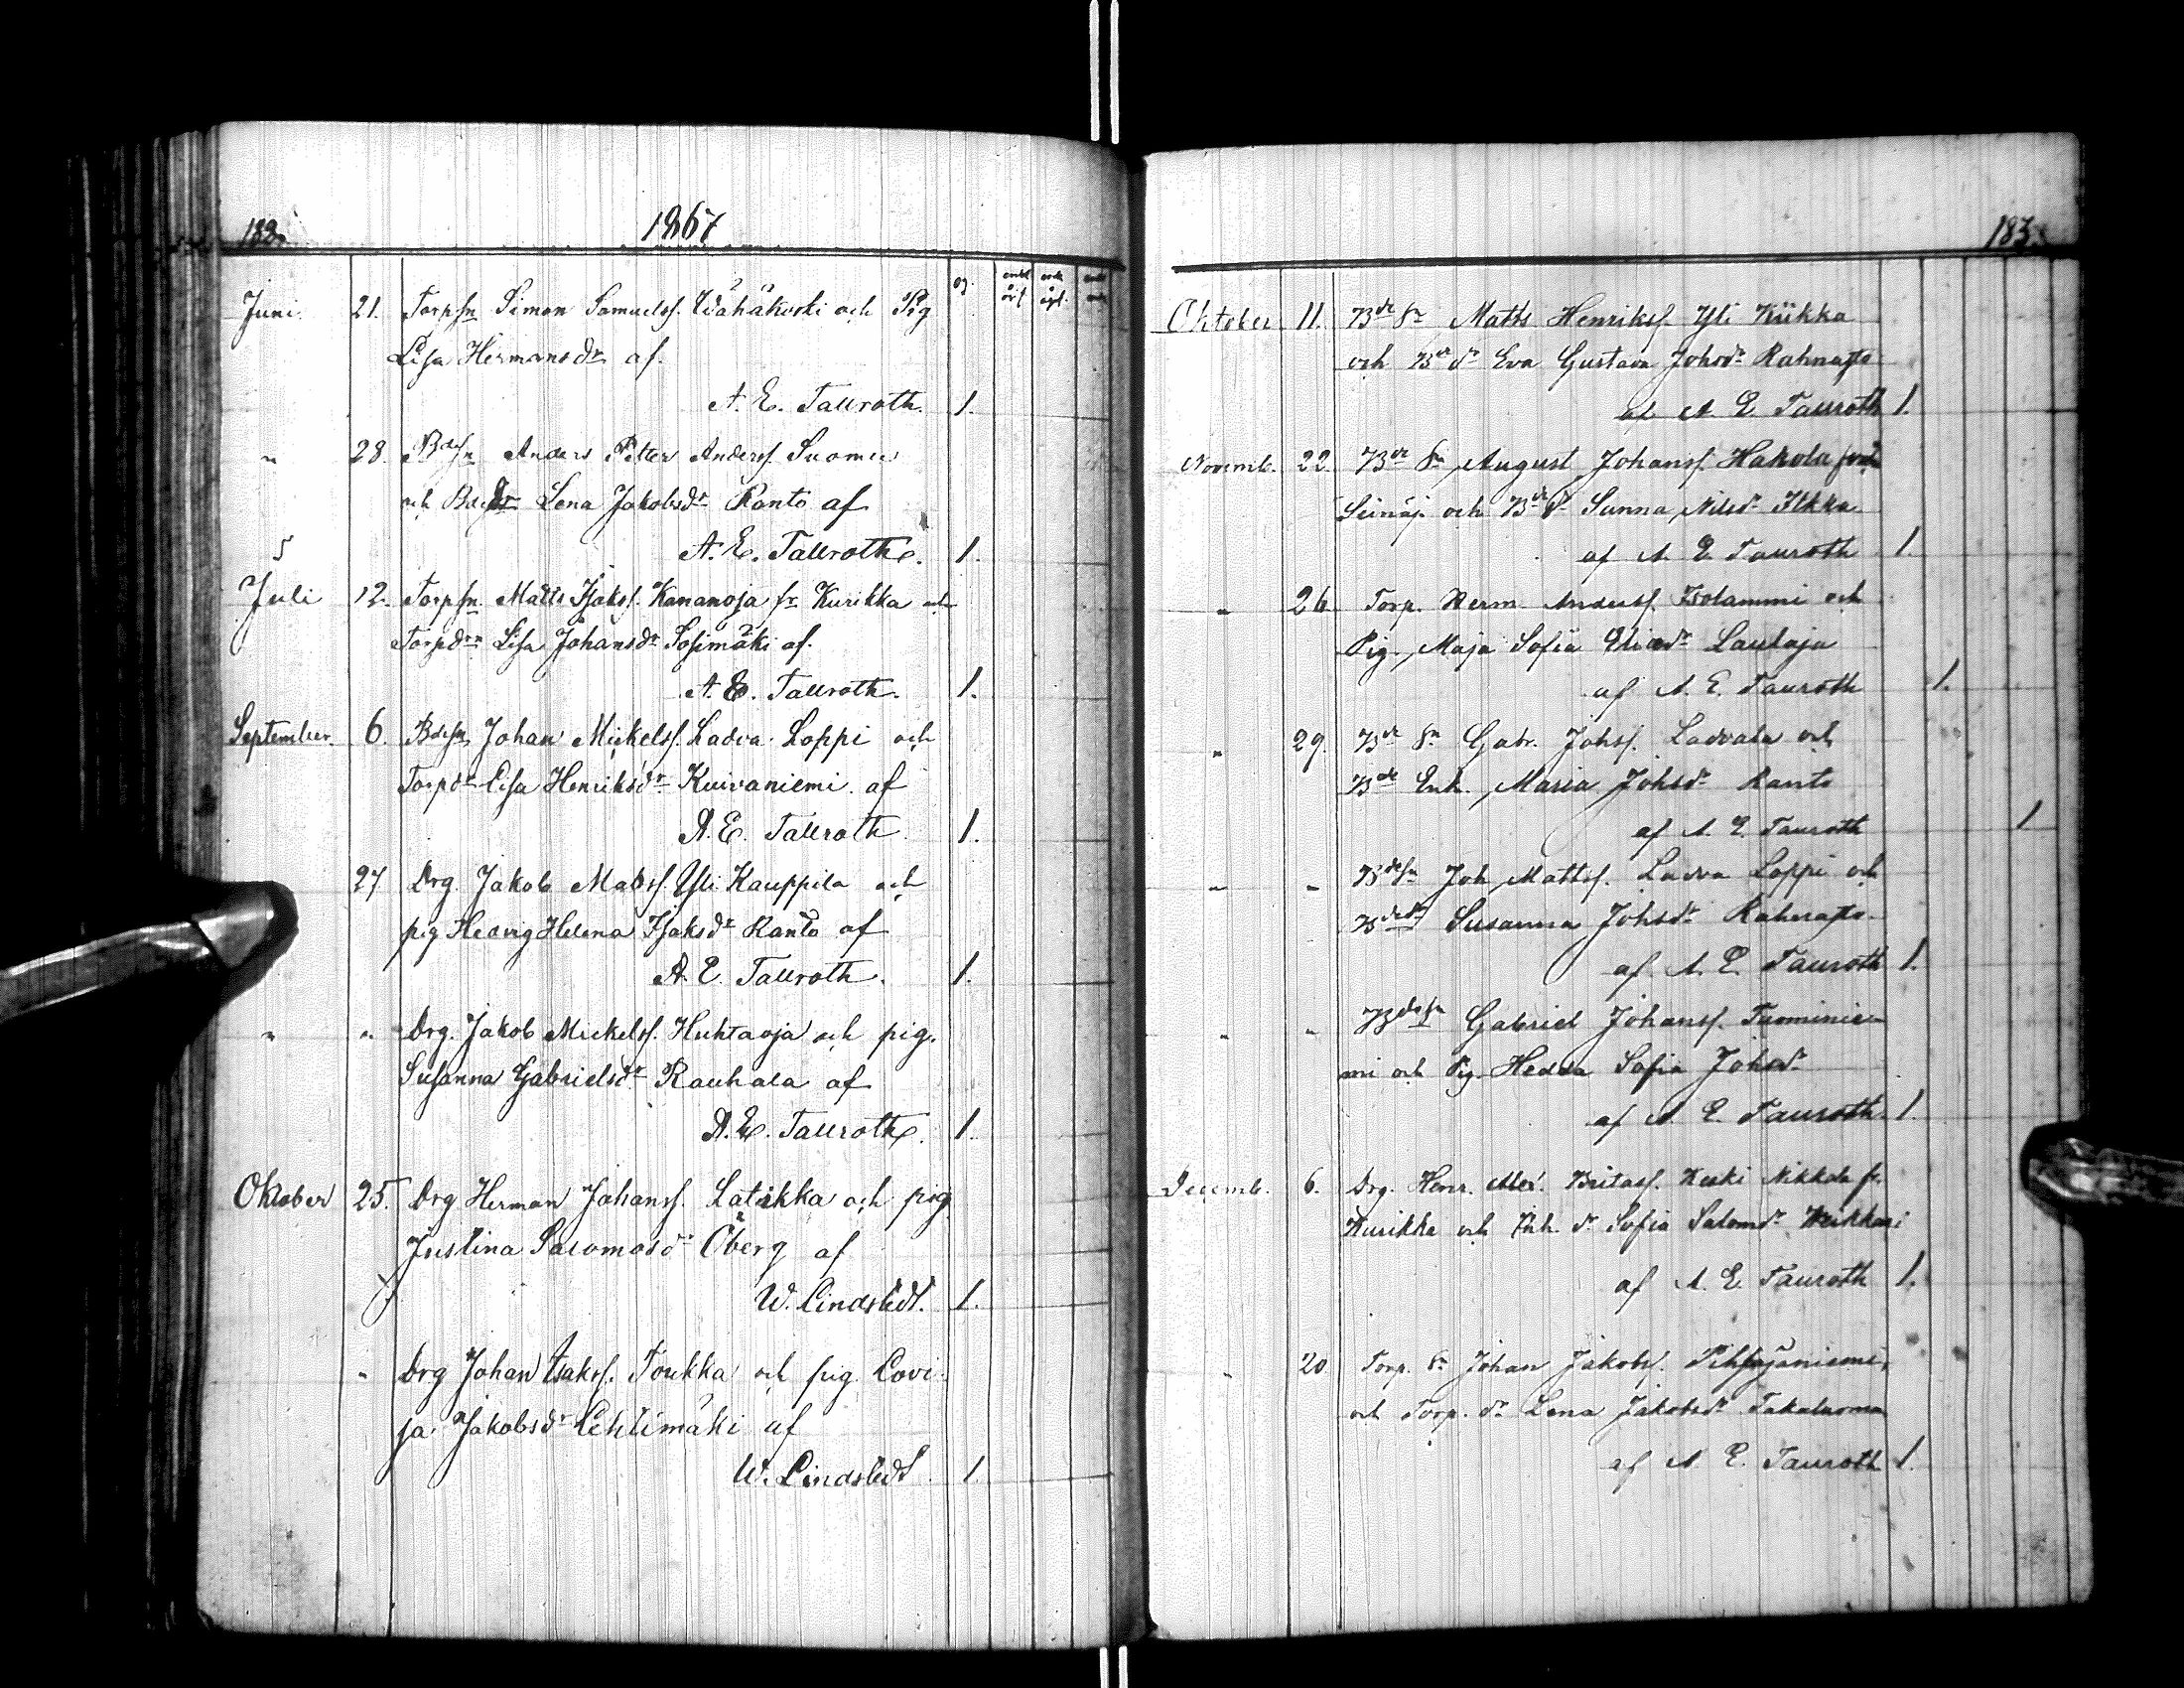 188.
1867
og. enkl. enk. enkl.
Juni. 21. Torpsn Simon Samuelss. Wähäkoski och Pig
Lisa Hermansdr af.
A. E. Tallroth. 1.
" 28. Bdesn Anders Petter Anderss. Suomu
och Bdedr Lena Jakobsdr Ranto af
A. E. Tallroth. 1.
5
Juli 12. Torpsn. Matts Isakss. Kananoja fr. Kurikka och
Torpdrn Lisa Johansdr Sosimäki af.
A. E. Tallroth. 1.
September. 6. Bdesn Johan Mickelss. Ladva Loppi och
Torpdr Lisa Henriksdr Kuivaniemi. af
A. E. Tallroth 1.
27 Drg. Jakob Matss. Yli Kauppila och
pig Hedvig Helena Isaksdr Ranto af
A. E. Tallroth. 1.
" " Drg. Jakob Mickelss. Huhtaoja och pig.
Susanna Gabrielsdr Rauhala af
A. E. Tallroth. 1.
Oktober 25. Drg Herman Johanss. Latikka och pig
Justina Salomosdr Öberg af
W. Lindstedt. 1.
" Drg Johan Isakss. Toukka och pig. Lovi-
sa Jakobsdr Lehtimäki af
W. Lindstedt. 1.
183.
Oktober 11. Bde Sn Matts Henrikss. Yli Kükka
och Bde dr Eva Gustava Johsdr Rahnasto
af A E Tallroth 1.
Novemb. 22. Bde Sn August Johanss. Hakola från
Seinäj. och Bde dr Sanna Nilsdr Ilkka
af A. E. Tallroth 1.
" 26. Torp. Herm. Anderss. Isolammi och
Pig. Maja Sofia Eliaedr Laulaja
af A. E. Tallroth 1.
" 29. Bde Sn Gabr. Johss. Ladvala och
Bde Enk. Maria Johsdr Ranto
af A. E. Tallroth 1
" " Bdesn Joh. Mattss. Ladva Loppi och
Bdedr Susanna Johsdr Rahnasto
af A. E. Tallroth 1.
" " Bdesn Gabriel Johanss. Tuominie-
mi och Pig. Hedda Sofia Johsdr
af A. E. Tallroth. 1.
Decemb. 6. Drg. Henr. Alex. Britass. Keski Nikkola fr.
Kurikka och Inh. dr Sofia Salomdr
af A. E. Tallroth 1.
" 20 Torp. Sn Johan Jakobss.
och Torp. dr Lena Jakobsdr Takaluoma
af A E. Tallroth 1.